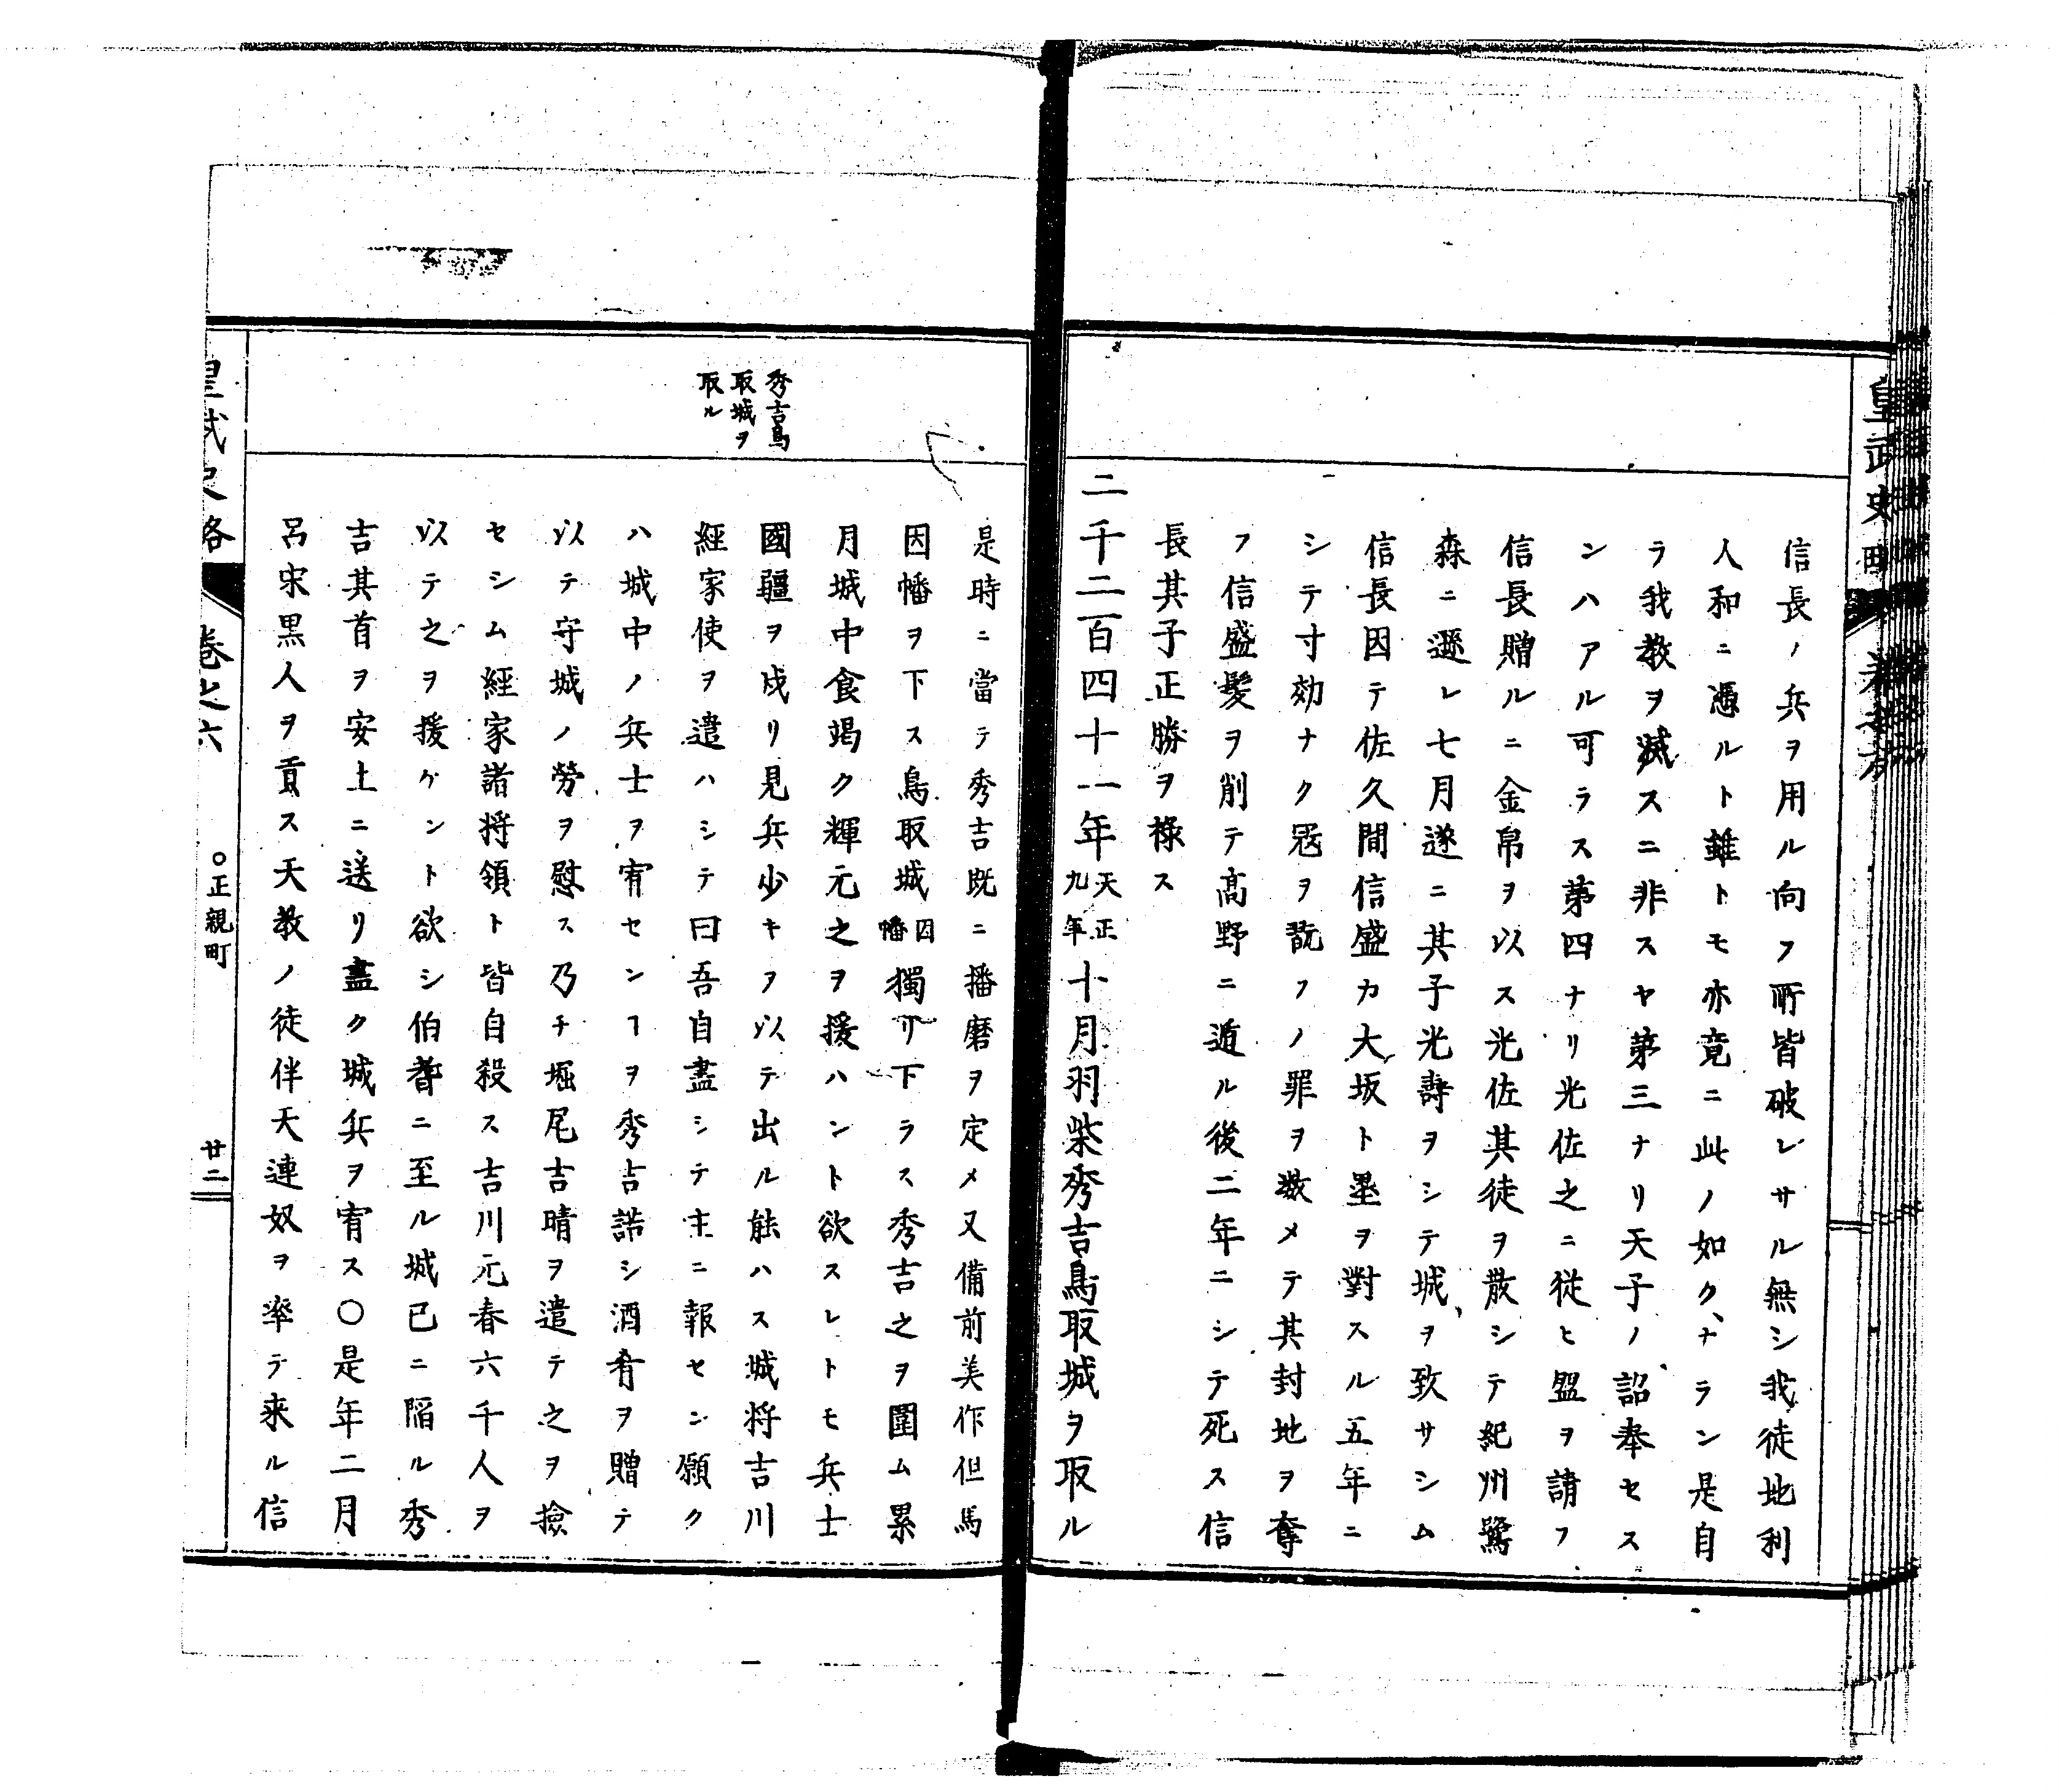 信長ノ兵ヲ用ル向フ所皆破レサル無シ我徒地利
人和ニ憑ルト雖トモ亦竟ニ此ノ如クナラン是自
ラ我教ヲ滅スニ非スヤ第三ナリ天子ノ詔奉セス
ンハアル可ラス第四ナリ光佐之ニ従ヒ盟ヲ請フ
信長贈ルニ金帛ヲ以ス光佐其徒ヲ散シテ紀州鷺
森ニ遯レ七月遂ニ其子光壽ヲシテ城ヲ致サシム
信長因テ佐久間信盛カ大坂ト壘ヲ對スル五年ニ
シテ寸効ナク冦ヲ翫フノ罪ヲ数メテ其封地ヲ奪
フ信盛髪ヲ削テ高野ニ遁ル後二年ニシテ死ス信
長其子正勝ヲ禄ス
二千二百四十一年天正九年十月羽柴秀吉鳥取城ヲ取ル
秀吉鳥
取城ヲ
取ル
是時ニ當テ秀吉既ニ播磨ヲ定メ又備前美作但馬
因幡ヲ下ス鳥取城因幡獨リ下ラス秀吉之ヲ圍ム累
月城中食竭ク輝元之ヲ援ハント欲スレトモ兵士
國疆ヲ戍リ見兵少キヲ以テ出ル能ハス城将吉川
經家使ヲ遣ハシテ曰吾自盡シテ主ニ報セン願ク
ハ城中ノ兵士ヲ宥センヿヲ秀吉諾シ酒肴ヲ贈テ
以テ守城ノ勞ヲ慰ス乃チ堀尾吉晴ヲ遣テ之ヲ撿
セシム經家諸将領ト皆自殺ス吉川元春六千人ヲ
以テ之ヲ援ケント欲シ伯耆ニ至ル城已ニ陥ル秀
吉其首ヲ安土ニ送リ盡ク城兵ヲ宥ス〇是年二月
呂宋黒人ヲ貢ス天教ノ徒伴天連奴ヲ率テ来ル信
皇武史略 巻之六 ○正親町 廿二